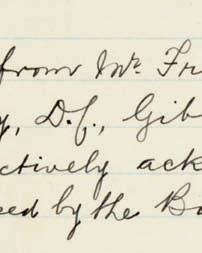 from Mr. Fr
y, D.C., Gib
ctively ack
ed by the Bo